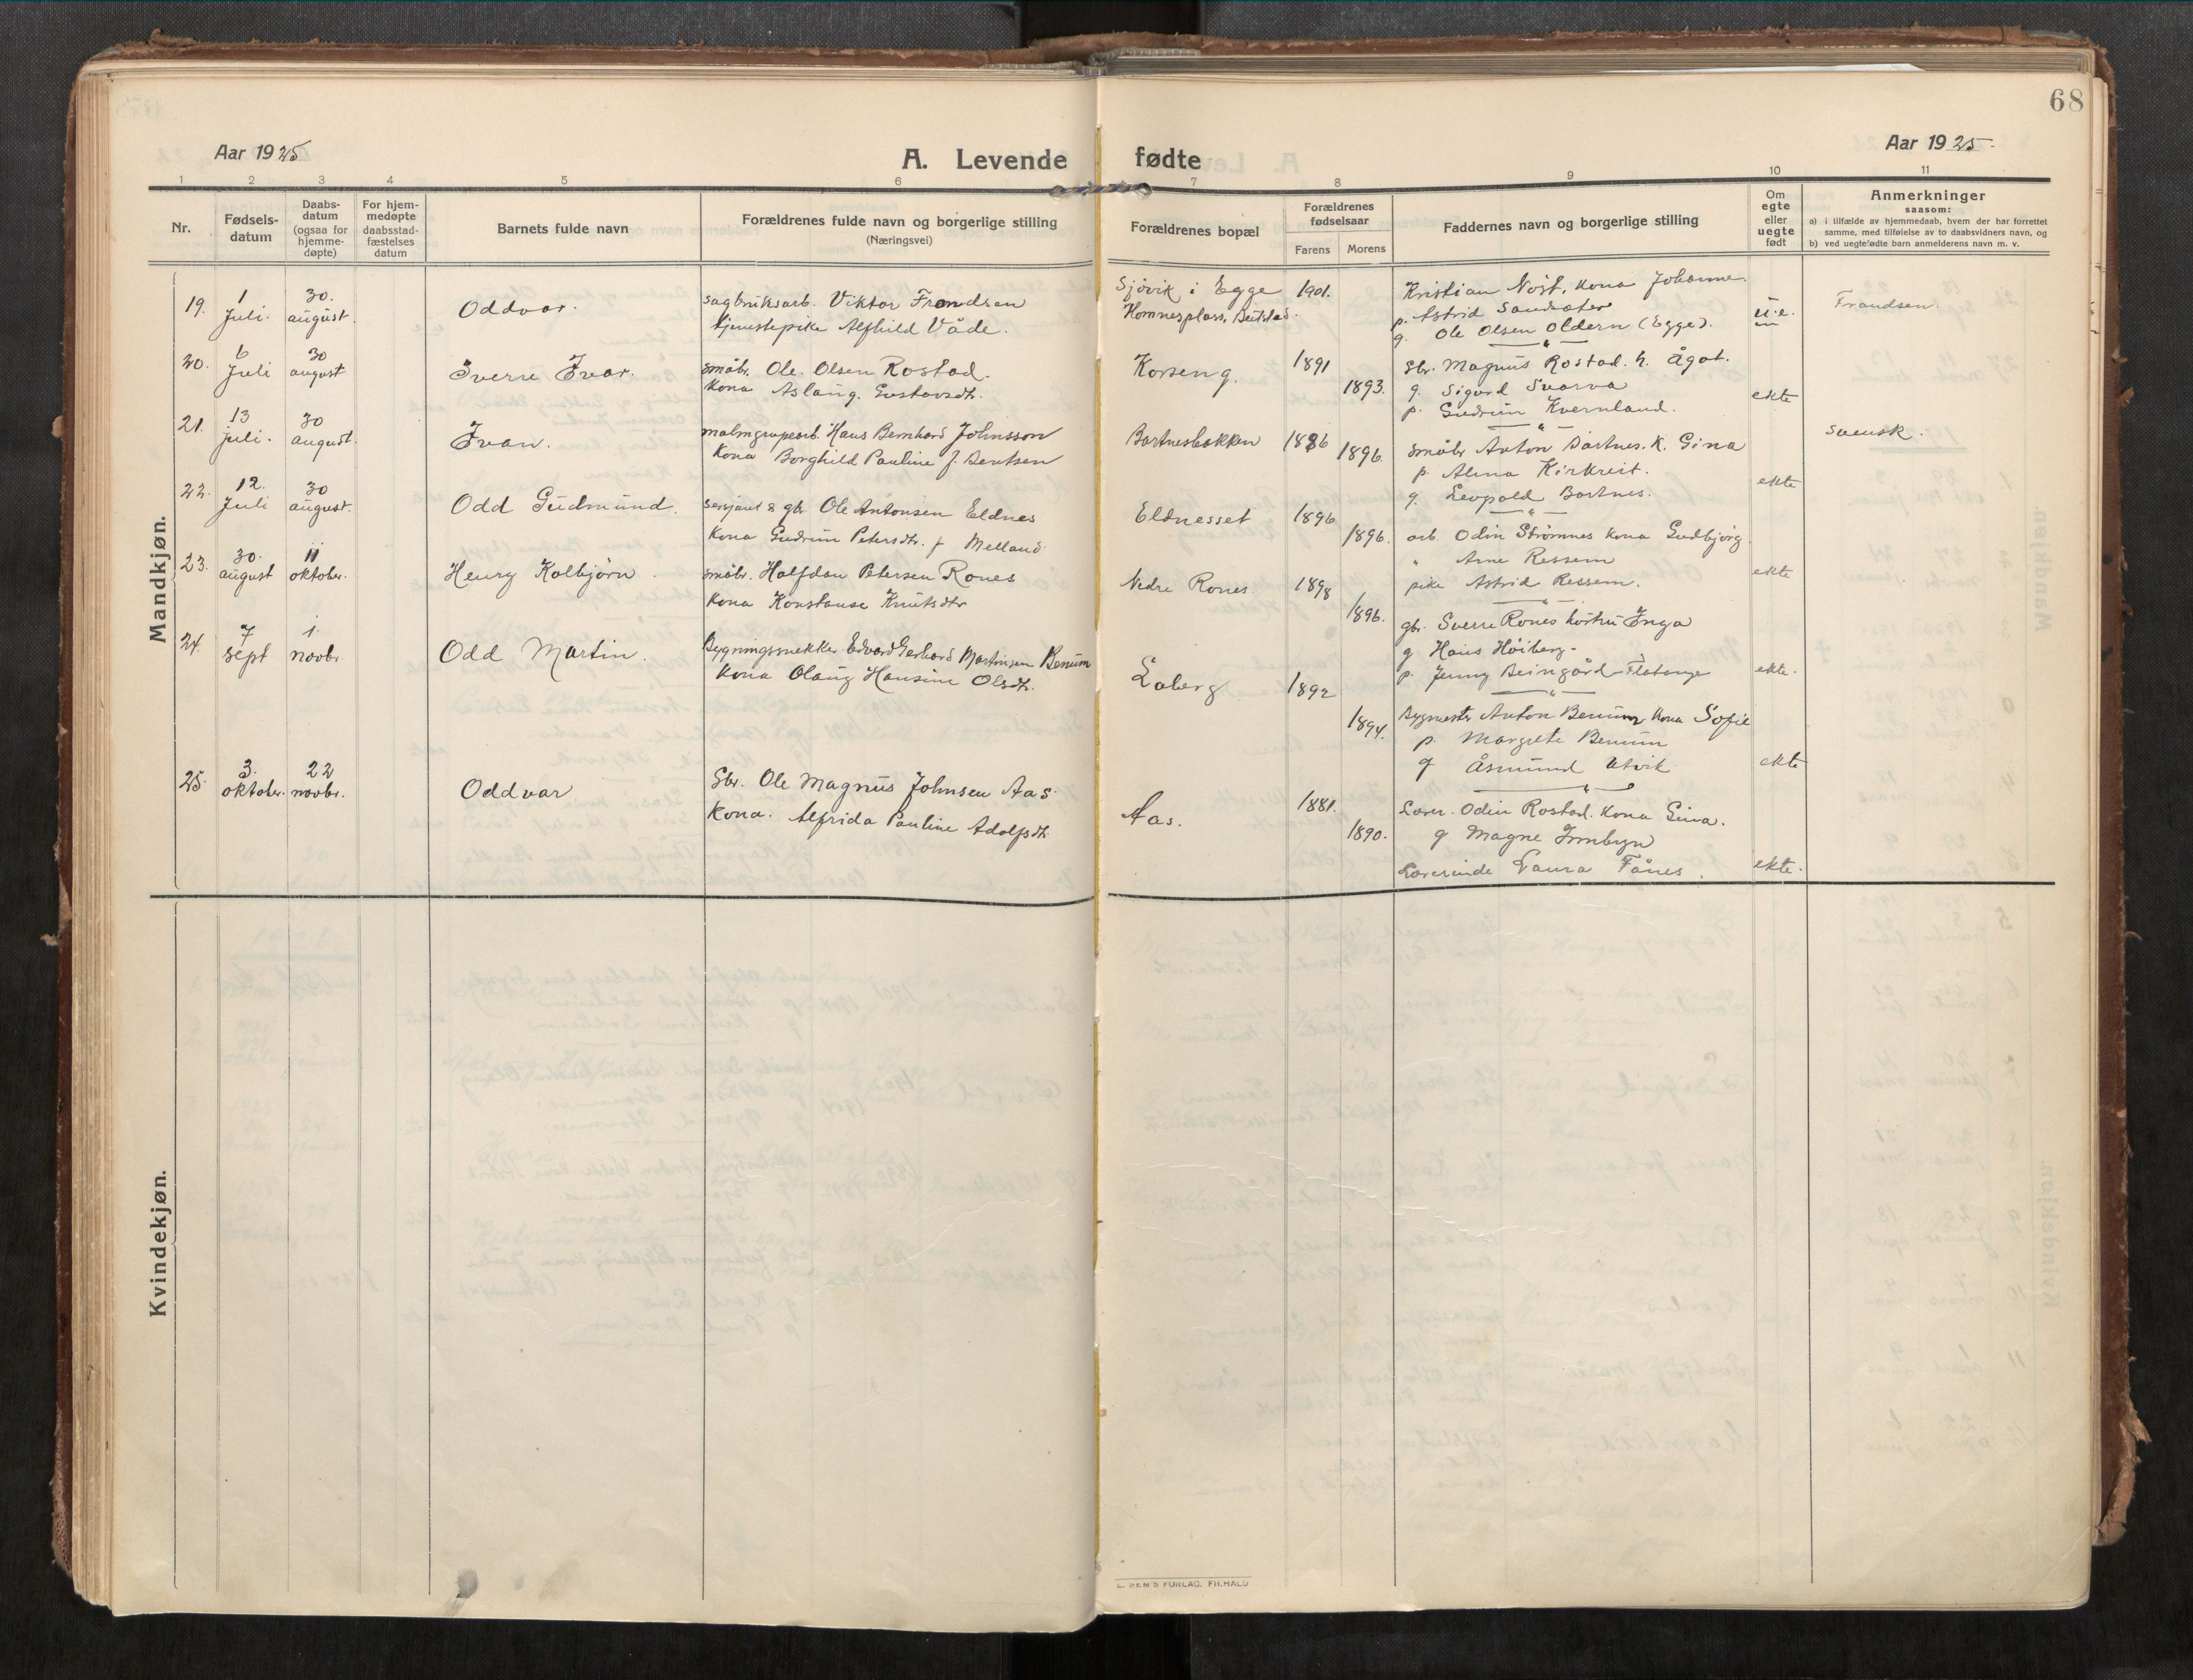 68
Aar 1925
A. Levende fødte
Aar 1925.
1 2 3 4 5 6 7 8 9 10 11
Nr.
Fødsels-
datum
Daabs-
datum
(ogsaa for
hjemme-
døpte)
For hjem-
medøpte
daabsstad-
fæstelses
datum
Barnets fulde navn
Forældrenes fulde navn og borgerlige stilling
(Næringsvei)
Forældrenes bopæl
Forældrenes
fødselsaar
Farens Morens
Faddernes navn og borgerlige stilling
Om
egte
eller
uegte
født
Anmerkninger
saasom:
a) i tilfælde av hjemmedaab, hvem der har forrettet
samme, med tilføielse av to daabsvidners navn, og
b) ved uegtefødte barn anmelderens navn m. v.
Mandkjøn.
19. 1 Juli. 30. august. Oddvar.
sagbruksarb. Viktor Frandsen
tjenestepike Alfhild Våde.
Sjövik i Egge
Homnesplass, Beitstad.
1901.
Kristian Nöst, kona Johanne.
p. Astrid Sandsæter
g. Ole Olsen Oldern (Egge).
u.e.
Frandsen.
20. 6 Juli 30 august Sverre Ivar.
småbr. Ole Olsen Rostad.
Kona Aslaug Gustavsdtr.
Korseng.
1891
1893.
Gbr. Magnus Rostad. h. Ågot.
g. Sigurd Svarva
p. Gudrun Kvernland.
ekte
21. 13 juli. 30 august. Ivan.
malmgrupearb. Hans Bernhard Johnsson
Kona Borghild Pauline f. Bentsen
Bartnesbakken
1886
1896.
småbr Anton Bartnes. K. Gina
p. Alma Kirkreit.
g. Leopold Bartnes.
ekte
svensk.
22. 12. Juli 30 august. Odd Gudmund.
sersjant & gbr. Ole Antonsen Eldnes
Kona Gudrun Petersdtr. f. Melland
Eldnesset
1896
1896.
arb. Odin Strömnes kona Gudbjörg.
" Arne Ressem
pike Astrid Ressem.
ekte
23. 30. august 11 oktober. Henry Kolbjörn.
småbr. Halfdan Petersen Rones
Kona Konstanse Knutsdtr
Nedre Rones.
1898
1896.
gbr. Sverre Rones hustru Inga
g Hans Höiberg.
p. Jenny Beingård Flatanger
ekte.
24. 7 sept 1. novbr. Odd Martin.
Bygningssnekker Edvard Gerhard Martinsen Benum
Kona Olaug Hansine Olsdtr.
Laberg
1892
1894.
Bygmester Anton Benum kona Sofie
p. Margrete Benum
g Åsmund Utvik
ekte
25. 3. oktober. 22 novbr. Oddvar
Gbr. Ole Magnus Johnsen Aas.
Kona. Alfrida Pauline Adolfsdtr.
Aas.
1881.
1890.
Lærer. Odin Rostad. kona Gina.
g Magne
Lærerinde Laura Fånes.
ekte.
Kvindekjøn.
E. SEM'S FORLAG, FR.HALD